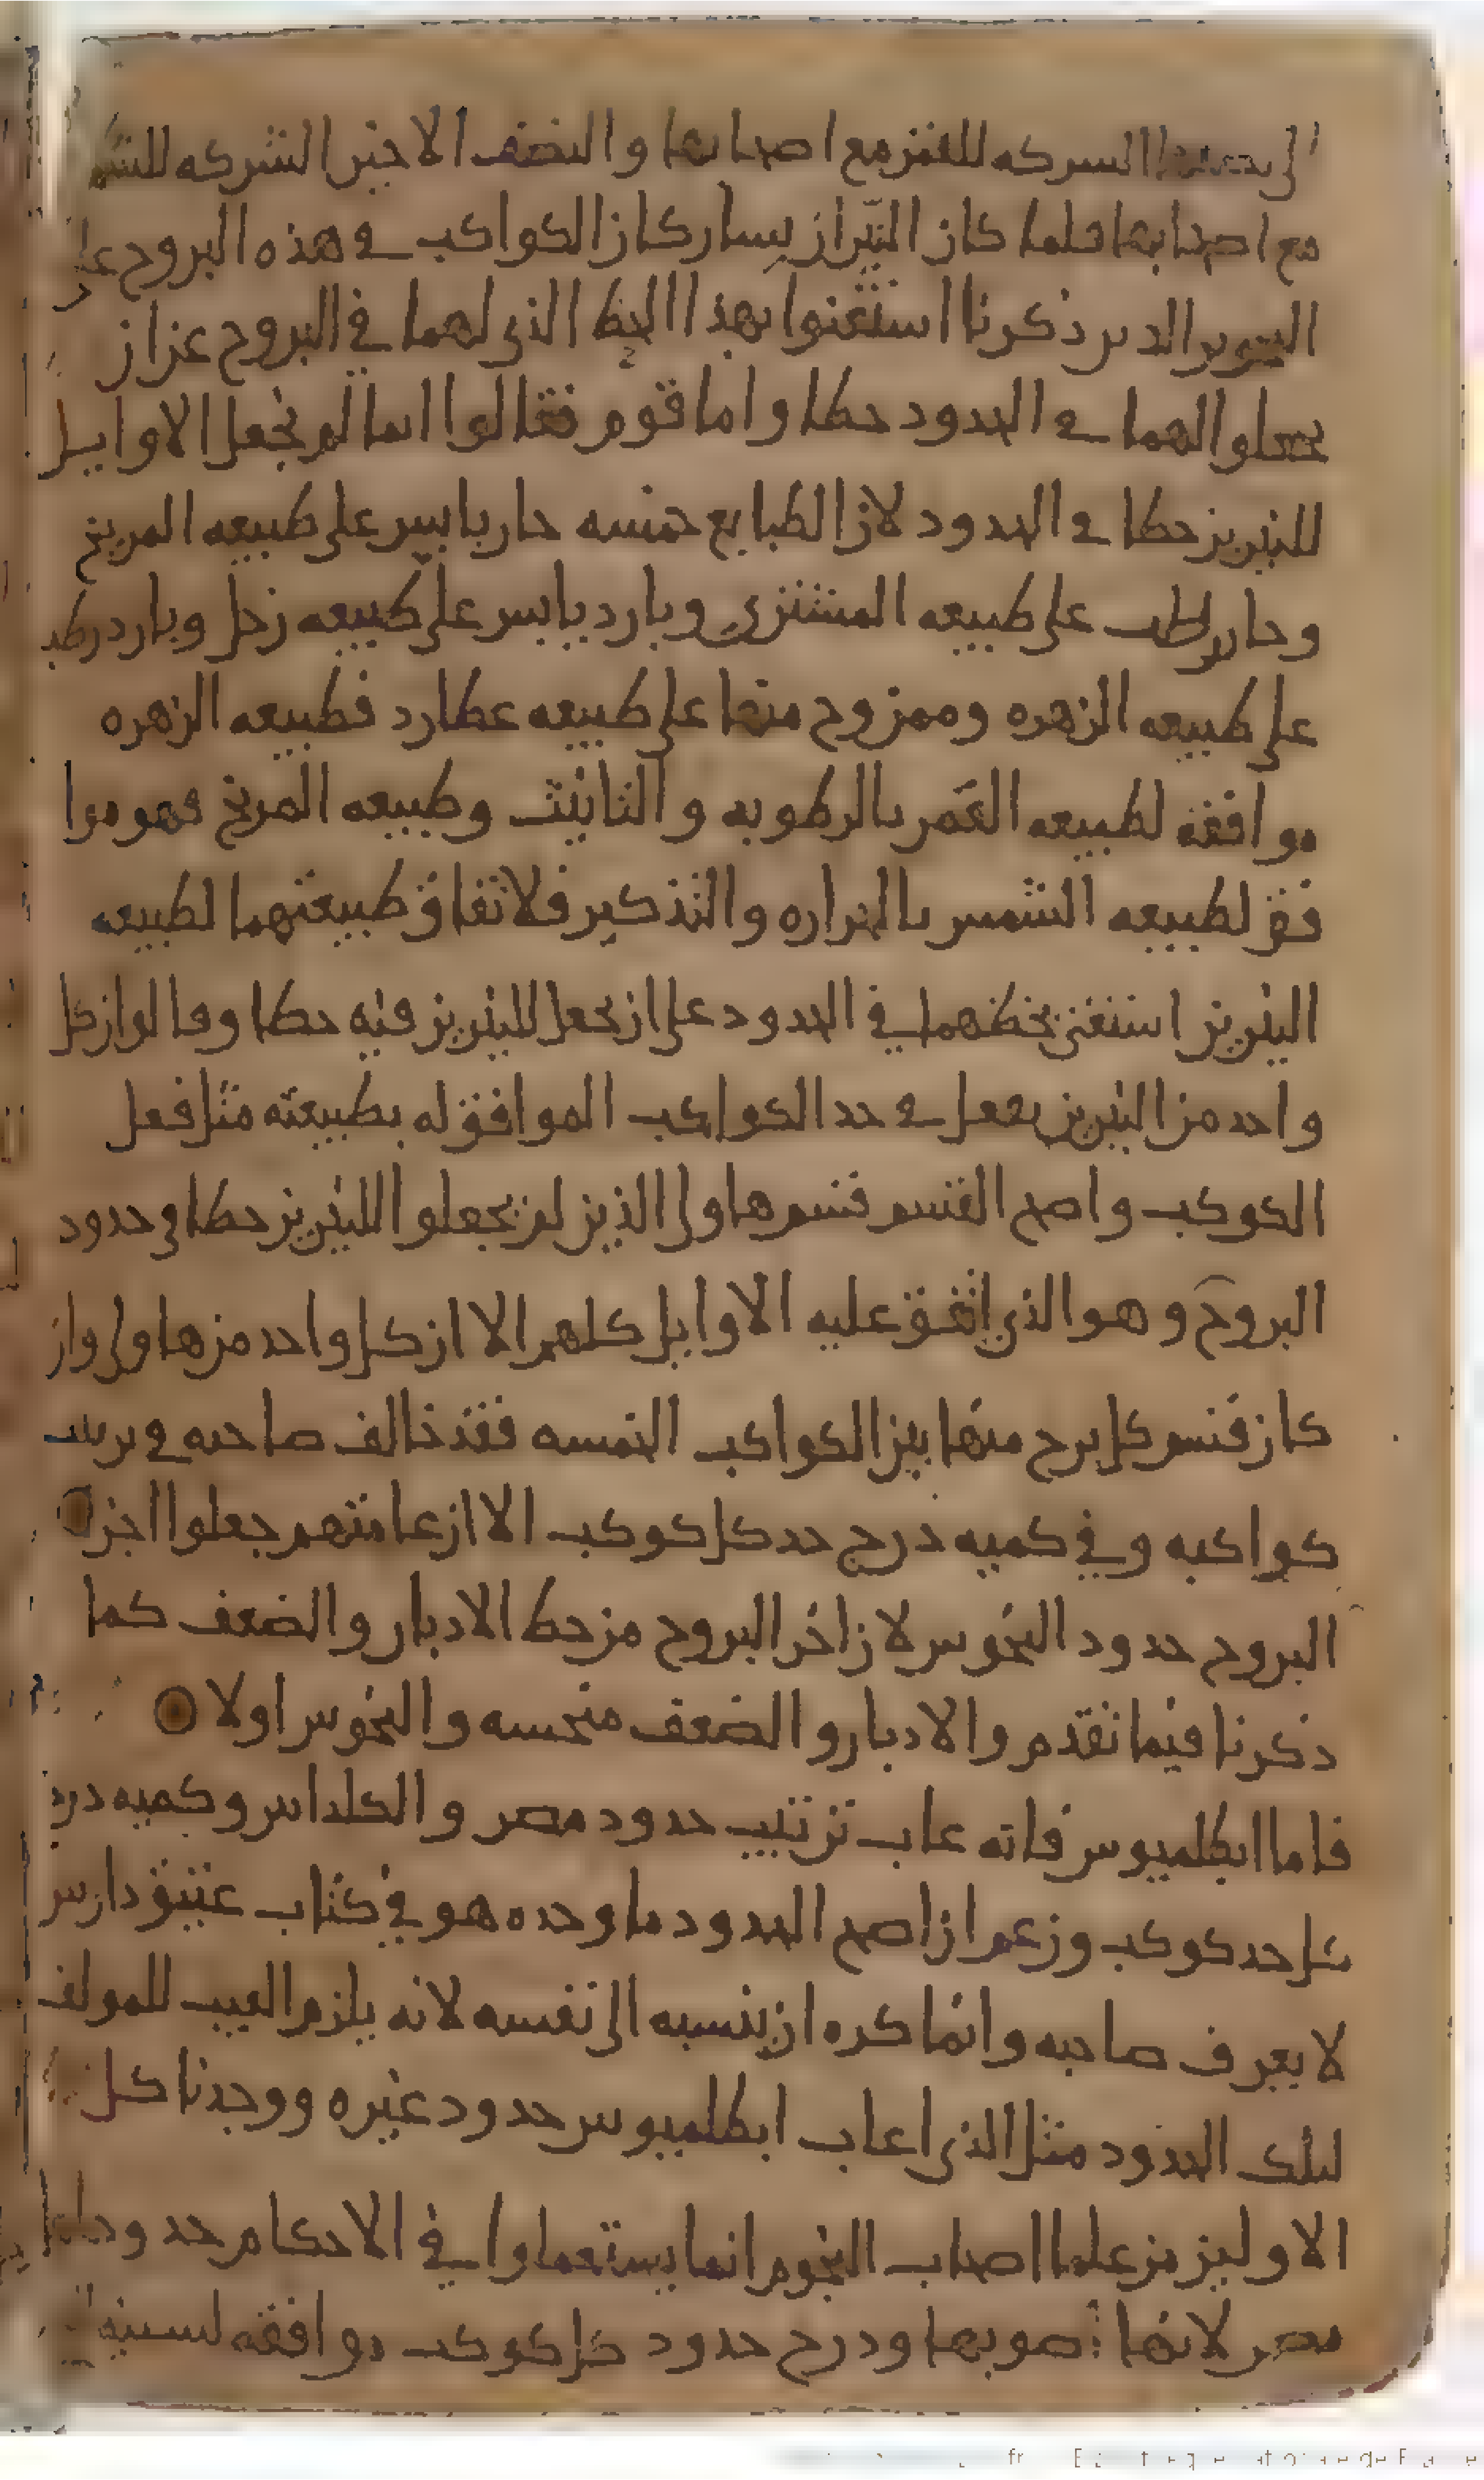 الشركه للقمر مع اصحابها والنصف الاخير الشركه للشمس
مع اصحابها فلما كان النيران يشاركان الكواكب في هذه البروج على
النحوين الذين ذكرنا استغنوا بهذا الحظ الذي لهما في البروج عن ان
يجعلوا لهما في الحدود حظا واما قوم فقالوا انما لم يجعل الاوايل
للنيرين حظا في الحدود لان الطبايع خمسه حار يابس على طبيعه المريخ
وحار رطب على طبيعه المشتري وبارد يابس على طبيعه زحل وبارد رطب
على طبيعه الزهره وممزوج منها على طبيعه عطارد فطبيعه الزهره
موافقه لطبيعه القمر بالرطوبه والتانيث وطبيعه المريخ فهو موا
فق لطبيعه الشمس بالحراره والتذكير فلاتفاق طبيعتهما لطبيعه
النيرين استغنى بحظهما في الحدود على ان يجعل للنيرين فيه حظا وقالوا ان كل
واحد من النيرين يفعل في حد الكواكب الموافق له بطبيعته مثل فعل
الكوكب واصح القسم قسم هاولى الذين لم يجعلوا للنيرين حظا في حدود
البروج وهو الذي اتفق عليه الاوايل كلهم الا ان كل واحد من هاولى وان
كان قسم كل برج منها بين الكواكب الخمسه فقد خالف صاحبه في ترتيب
كواكبه وفي كميه درج حد كل كوكب الا ان عامتهم جعلوا اخر
البروج حدود النحوس لان اخر البروج من حظ الادبار والضعف كما
ذكرنا فيما تقدم والادبار والضعف منحسه والنحوس اولا
فاما ابطلميوس فانه عاب ترتيب حدود مصر والكلدانين وكميه درج
كل حد كوكب وزعم ان اصح الحدود ما وجده هو في كتاب عتيق دارس
لا يعرف صاحبه وانما كره ان ينسبه الى نفسه لانه يلزم العيب للمولف
لتلك الحدود مثل الذي اعاب ابطلميوس حدود غيره ووجدنا كل
الاولين من علما اصحاب النجوم انما يستعملوا في الاحكام حدود اهل
مصر لانها اصوبها ودرج حدود كل كوكب موافقه لسنيه